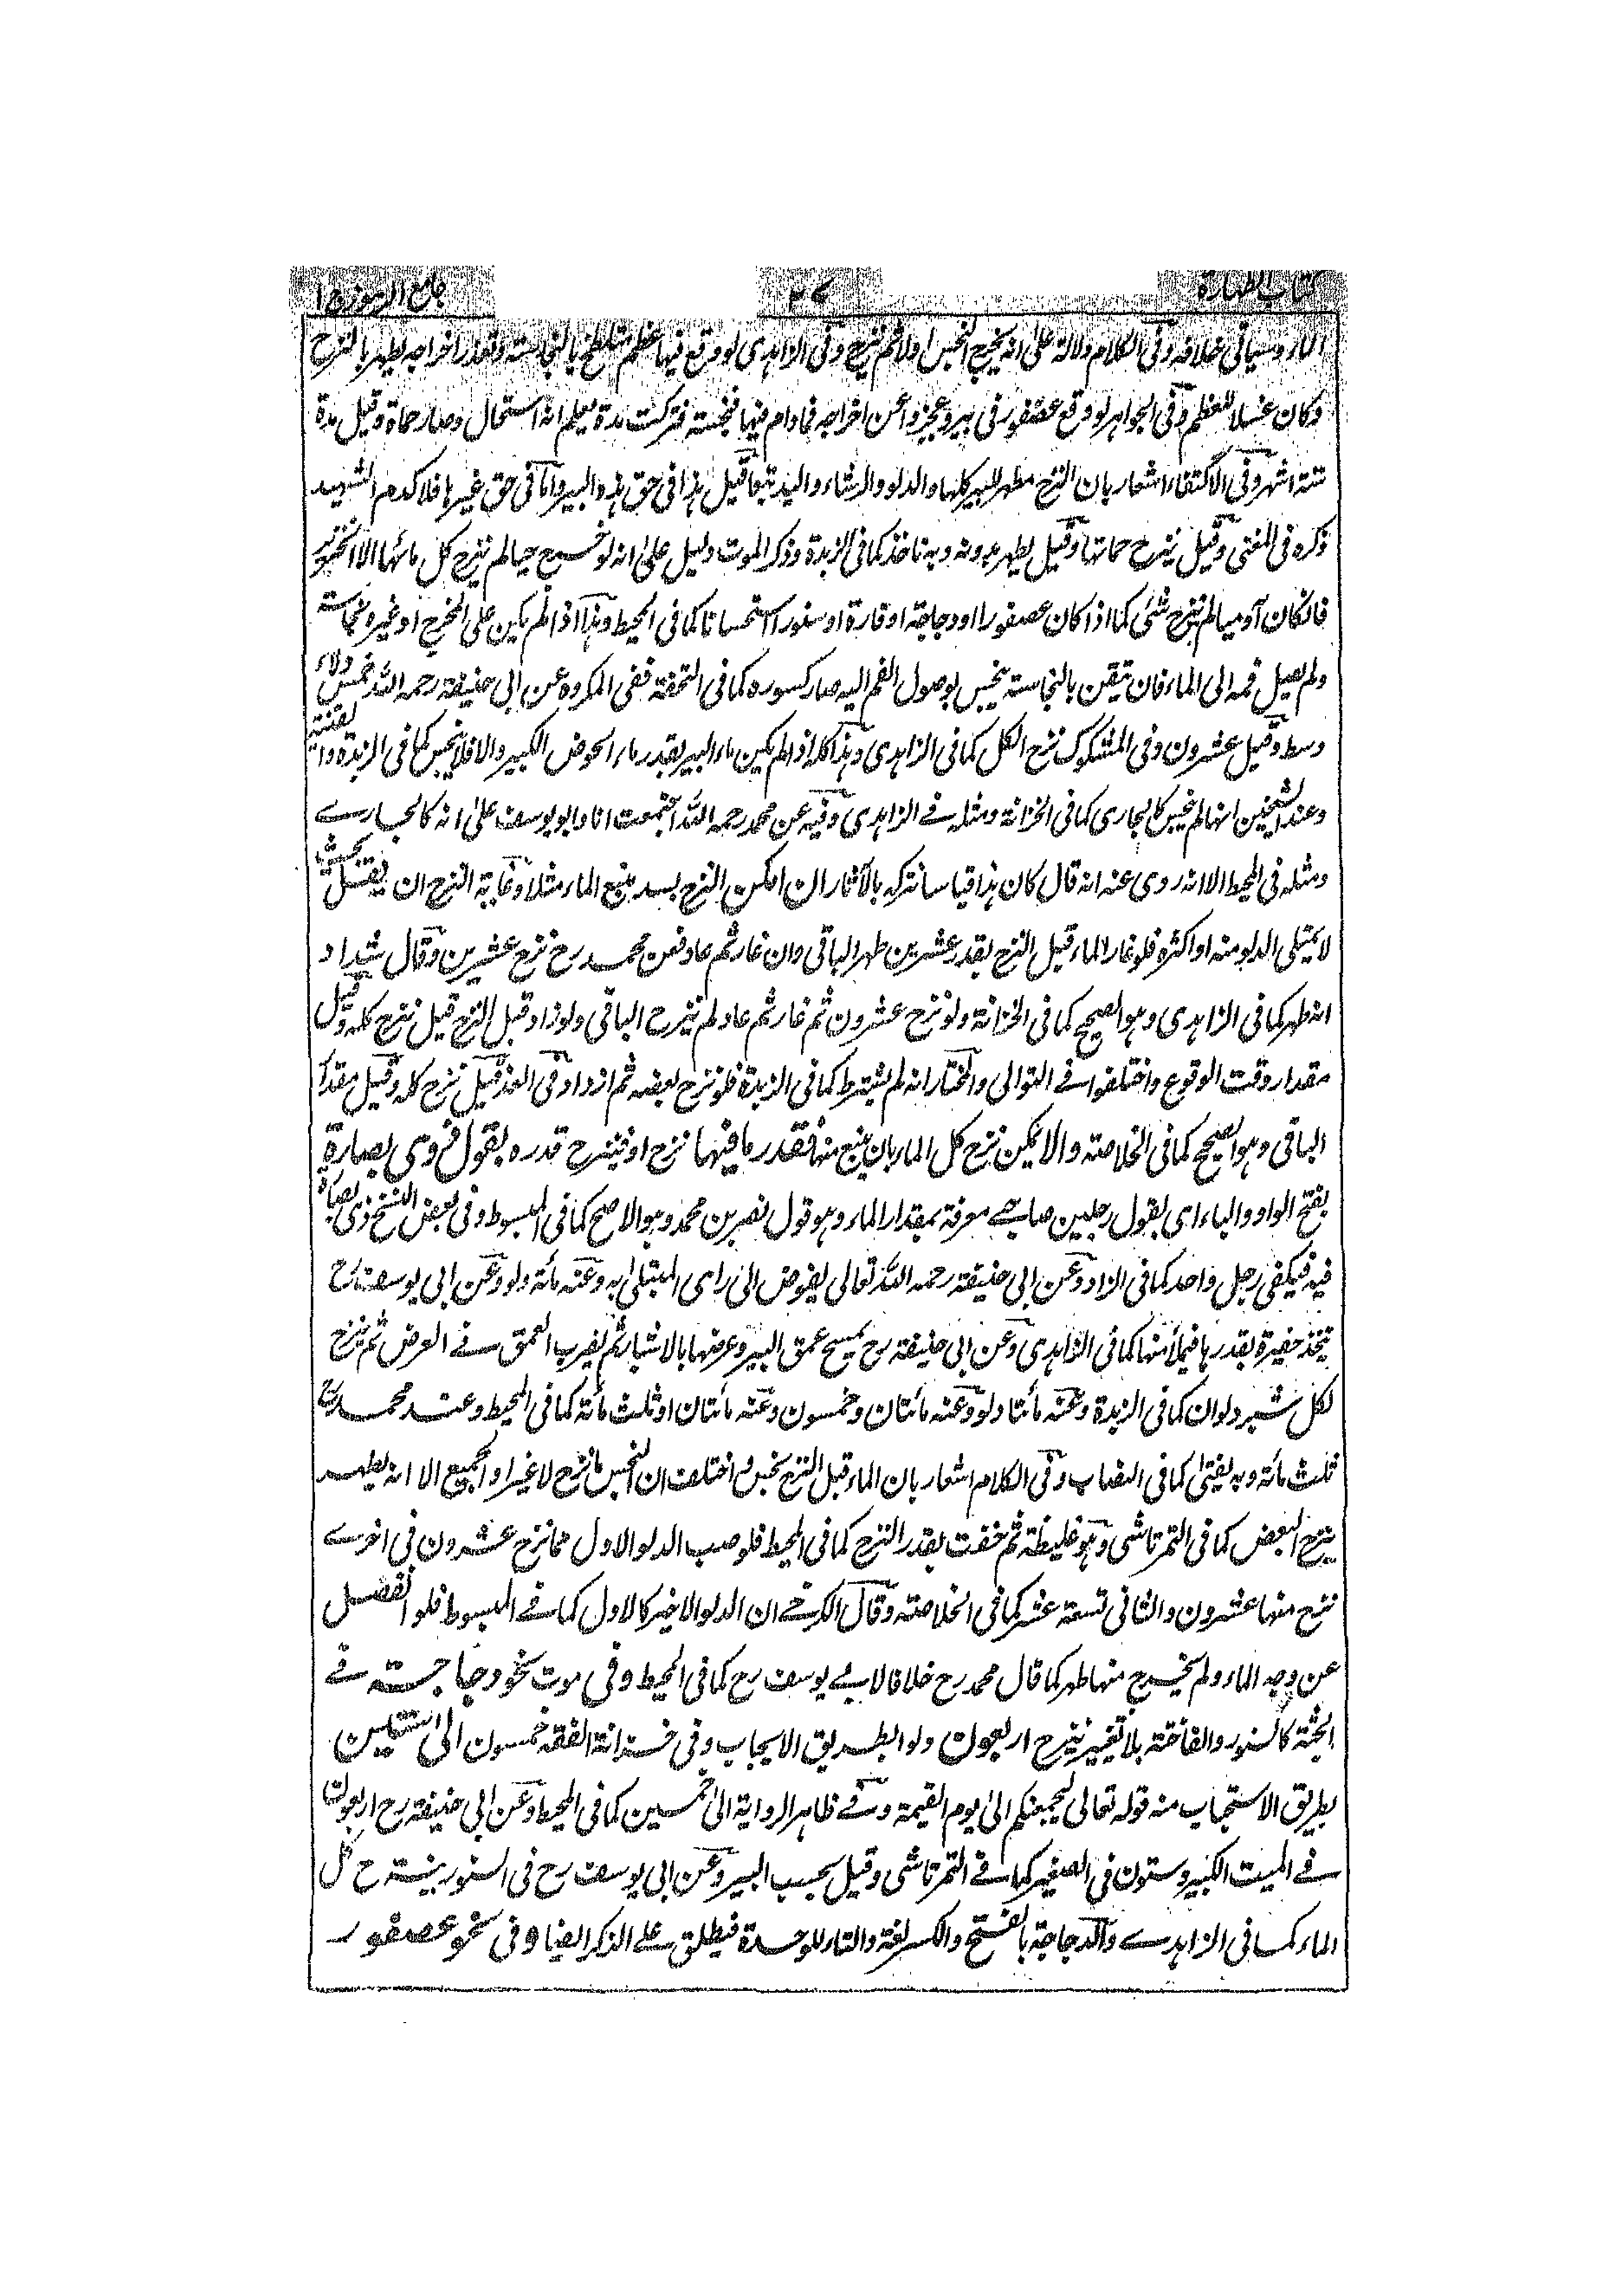 كتاب الطهارة
٣٧
جامع الرموز ج ١
الماء وسياتى خلافه وفى الكلام دلالة على انه يخرج النجس اولا ثم ينزح وفى الزاهدى لو وقع فيها عظم متلطخ بالنجاسة وتعذر اخراجه يطهر بالنزح
وكان غسلا للعظم وفى الجواهر لو وقع عصفور فى بير وعجزوا عن اخراجه فما دام فيها فنجسة فتركت مدة يعلم انه استحال وصار حماة وقيل مدة
ستة اشهر وفى الاكتفاء اشعار بان النزح مطهر للبير كلها والدلو والرشاء واليد تبعا قيل هذا فى حق هذه البير واما فى حق غيرها فلا كدم الشهيد
ذكره فى المغنى وقيل ينزح حماتها وقيل يطهر بدونه وبه ناخذ كما فى الزبدة وذكر الموت دليل على انه لو خرج حيا لم ينزح كل مائها الا الخنزير
فان كان آدميا لم ينزح شئ كما اذا كان عصفورا او دجاجة او فارة او سنورا استحسانا كما فى المحيط وهذا اذا لم يكن على المخرج او غيره نجاسة
ولم يصل فمه الى الماء فان تيقن بالنجاسة ينجس بوصول الفم اليه صار كسوره كما فى التحفة ففى المكروه عن ابى حنيفة رحمه الله خمس دلاء
وسط وقيل عشرون وفى المشكوك نزح الكل كما فى الزاهدى وهذا كله اذا لم يكن ماء البير بقدر ماء الحوض الكبير والا فلا ينجس كما فى الزبدة
وعند الشيخين انها لم تنجس كالجارى كما فى الخزانة ومثله فے الزاهدى وفيه عن محمد رحمه الله اجتمعت انا وابو يوسف على انه كالجارے
ومثله فى المحيط الا انه روى عنه انه قال كان هذا قياسا نتركه بالآثار ان امكن النزح بسد منبع الماء مثلا وغاية النزح ان يقل بحيث
لا يمتلى الدلو منه او اكثره فلو غار الماء قبل النزح بقدر عشرين طهر الباقى وان غار ثم عاد فعن محمد رح نزح عشرين وقال شداد
انه طهر كما فى الزاهدى وهو الصحيح كما فى الخزانة ولو نزح عشرون ثم غار ثم عاد لم ينزح الباقى ولو زاد قبل النزح قيل نزح كله وقيل
مقدار وقت الوقوع واختلفوا فے التوالى والمختار انه لم يشترط كما فى الزبدة فلو نزح بعضه ثم ازداد فى الغد قيل نزح كله وقيل مقدار
الباقى وهو الصحيح كما فى الخلاصة والا يمكن نزح كل الماء بان ينبع منها فقدر ما فيها نزح او فينزح قدره بقول ذوى بصارة
بفتح الواو والياء اى بقول رجلين صاحبے معرفة بمقدار الماء وهو قول نصر بن محمد وهو الاصح كما فى المبسوط وفى بعض النسخ ذى بصارة
فيه فيكفى رجل واحد كما فى الزاد وعن ابى حنيفة رحمه الله تعالى يفوض الى راى المبتلى به وعنه مائة دلو وعن ابى يوسف رح
يتخذ حفيرة بقدرها فيملأ منها كما فى الزاهدى وعن ابى حنيفة رح يمسح عمق البير وعرضها بالاشبار ثم يضرب العمق فے العرض ثم ينزح
لكل شبر دلوان كما فى الزبدة وعنه مائتا دلو وعنه مائتان وخمسون وعنه مائتان او ثلث مائة كما فى المحيط وعند محمد رح
ثلث مائة وبه يفتى كما فى النصاب وفى الكلام اشعار بان الماء قبل النزح نجس واختلف ان النجس ما نزح لا غير او الجميع الا انه يطهر
بنزح البعض كما فى التمرتاشى وهو غليظة ثم خفت بقدر النزح كما فى المحيط فلو صب الدلو الاول مما نزح عشرون فى اخرے
نزح منها عشرون والثانى تسعة عشر كما فى الخلاصة وقال الكرخے ان الدلو الاخير كالاول كما فے المبسوط فلو انفصل
عن وجه الماء ولم يخرج منها طهر كما قال محمد رح خلافا لابے يوسف رح كما فى المحيط وفى موت نحو دجاجة فے
الجثة كالسنور والفاختة بلا تغير ينزح اربعون دلوا بطريق الايجاب وفى خزانة الفقه خمسون الى ستين
بطريق الاستحباب منه قوله تعالى ليجمعنكم الى يوم القيمة وفے ظاهر الرواية الى خمسين كما فى المحيط وعن ابى حنيفة رح اربعون
فے الميت الكبير وستون فى الصغير كما فے التمرتاشى وقيل بحسب البير وعن ابى يوسف رح فى السنور ينزح كل
الماء كما فى الزاهدے والدجاجة بالفتح والكسر لغة والتاء للوحدة فيطلق على الذكر ايضا وفى نحو عصفور